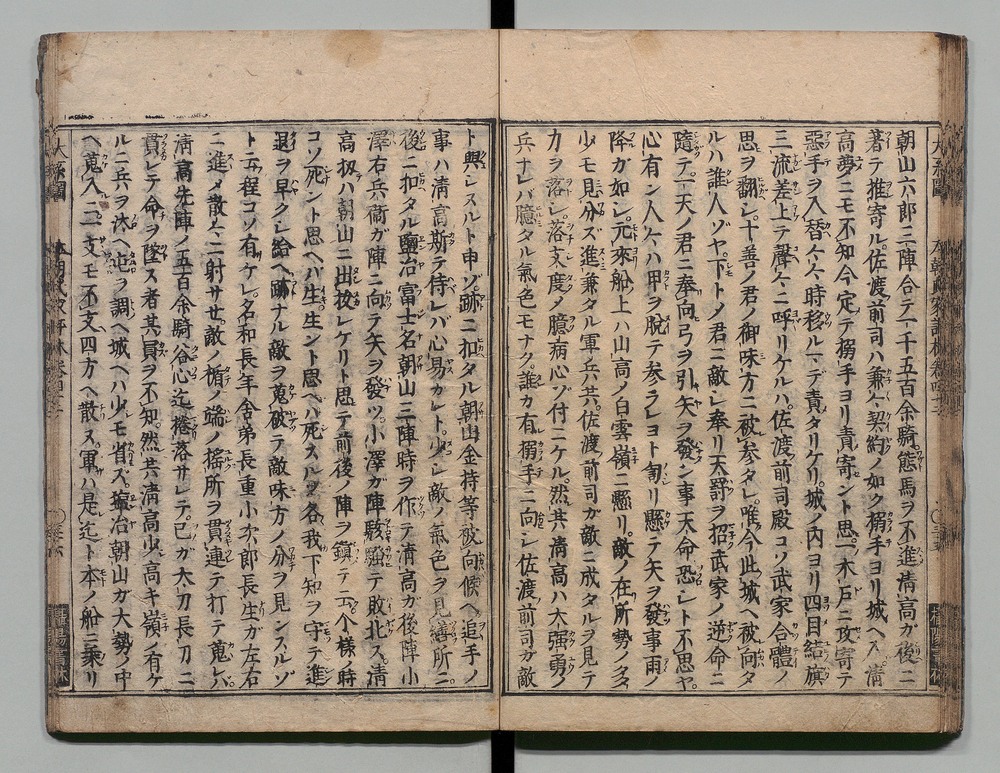 朝山六郎三陣合テ一千五百余騎態馬ヲ不進清高ガ後ニ
著テ推寄ル佐渡前司ハ兼ヘ契約ノ如ク搦手ヨリ城ヘ入清
高夢ニモ不知今定テ搦手ヨリ責寄ント思一木戸ニ攻寄テ
惡手ヲ入替〱時移ルマデ責タリケリ城ノ内ヨリ四目結旗
三流差上テ聲〱ニ呼リケルハ佐渡前司殿コソ武家合體ノ
思ヲ翻シ十善ノ君ノ御味方ニ被参タレ唯今此城ヘ被向タ
ルハ誰人ゾヤ下トノ君ニ敵シ奉リ天罸ヲ招武家ノ逆命ニ
隨テ一天ノ君ニ奉向弓ヲ引矢ヲ發ン事天命恐シト不思ヤ
心有ン人〱ハ甲ヲ脱テ参ラレヨト訇リ懸テ矢ヲ發事雨ノ
降ガ如シ元來船上ハ山高ノ白雲嶺ニ懸リ敵ノ在所勢ノ多
少モ見分ズ進兼タル軍兵共佐渡前司ガ敵ニ成タルヲ見テ
力ヲ落シ落支度ノ臆病心ゾ付ニケル然共清高ハ大強勇ノ
兵ナレバ臆タル氣色モナク誰カ有搦手ニ向シ佐渡前司ガ敵
ト與レスルト申ゾ跡ニ扣タル朝山金持等被向候ヘ追手ノ
事ハ清高斯テ侍レバ心易カレト少シ敵ノ氣色ヲ見繕所ニ
後ニ扣タル鹽冶富士名朝山三陣時ヲ作テ清高ガ後陣小
澤右兵衞ガ陣ニ向テ矢ヲ發ツ小澤ガ陣騒強テ敗北ス清
高扨ハ朝山ニ出抜レケリト思テ前後ノ陣ヲ鎮テ云个様ノ時
コソ死ント思ヘバ生生ント思ヘバ死スルゾ各我下知ヲ守テ進
退ヲ早クシ給ヘ跡ナル敵ヲ蒐破テ敵味方ノ分ヲ見ンスルゾ
ト云程コソ有ケレ名和長年舎弟長重小次郎長生ガ左右
ニ進メ散〱ニ射サセ敵ノ楯ノ端ノ揺所ヲ貫連テ打テ蒐レバ
清高先陣ノ五百余騎谷心迄捲落サレテ己ガ太刀長刀ニ
貫レテ命ヲ墜ス者其員ヲ不知然共清高少シ高キ嶺ノ有ケ
ルニ兵ヲ休ヘ屯ヲ調ヘ城ヘハ少モ省ズ塩冶朝山ガ大勢ノ中
ヘ蒐入ニ一支モ不支四方ヘ散ス軍ハ是迄ト本ノ船ニ乗リ